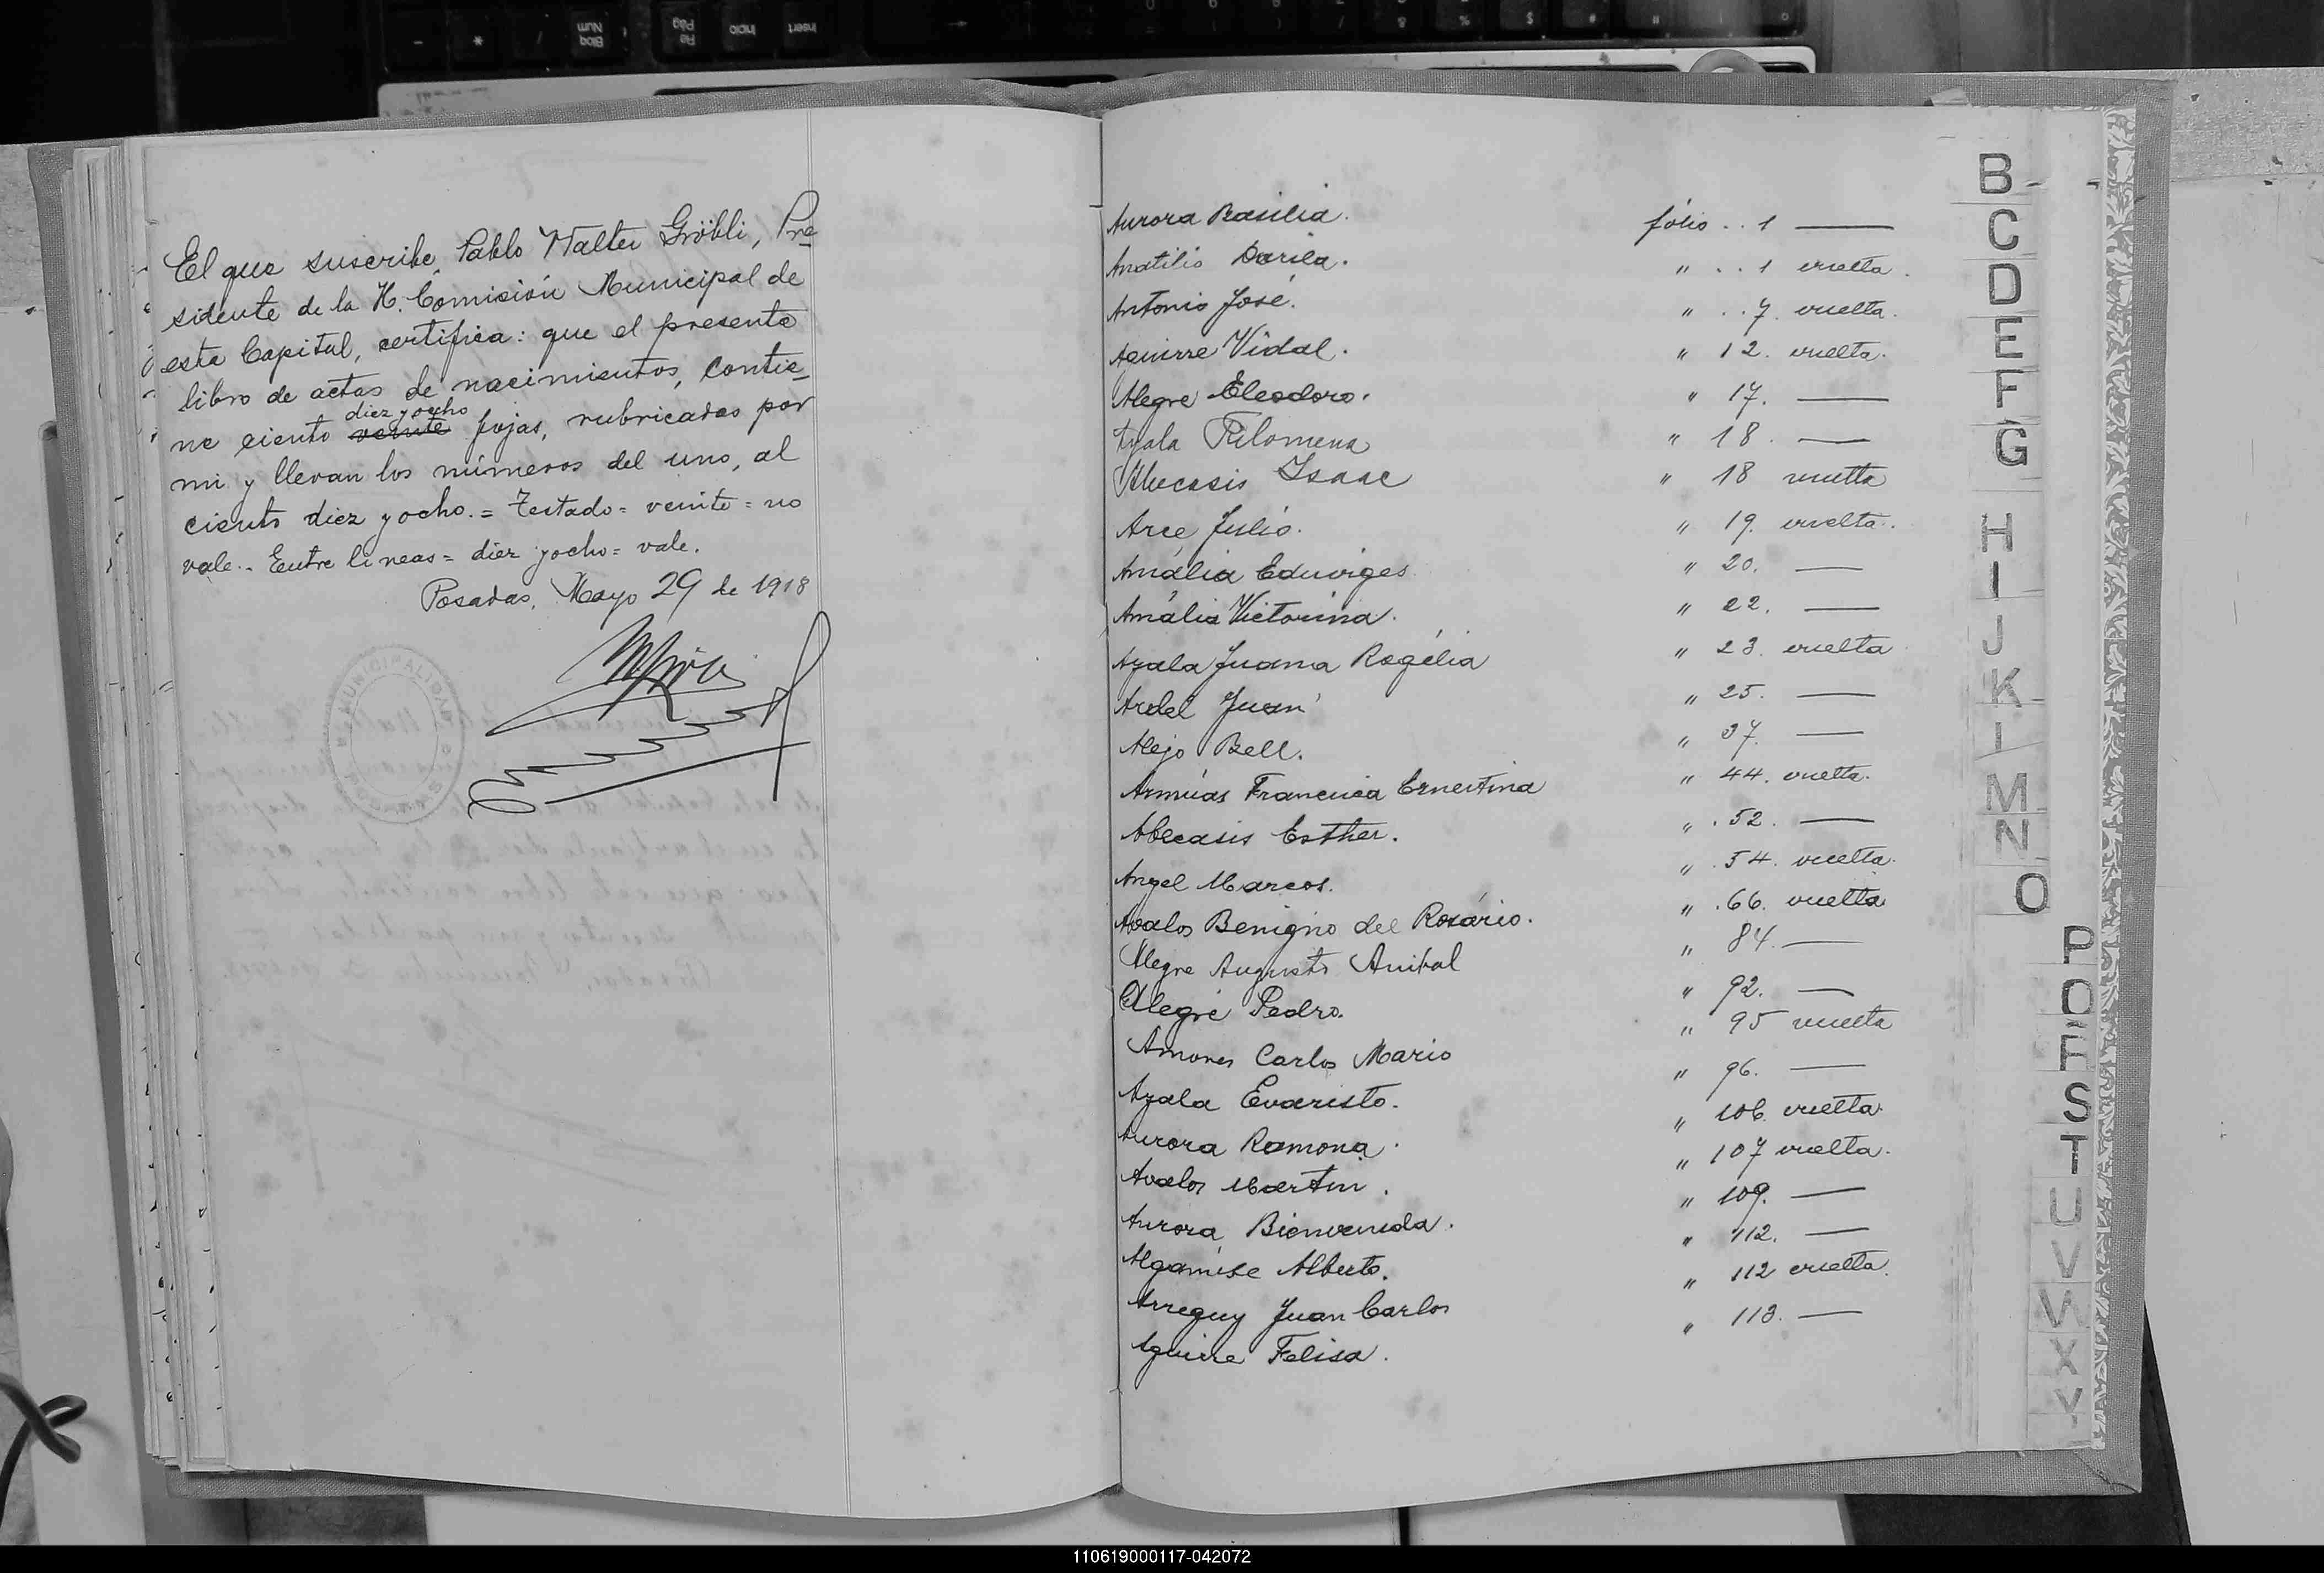 El que suscribe, Pablo Walter Gröbli, Pre_
sidente de la H. Comisión Municipal de
esta Capital, certifica: que el presente
libro de actas de nacimientos, contie_
diez y ocho
ne ciento veinte fojas, rubricadas por
mi y llevan los números del uno, al
ciento diez y ocho. = Testado = veinte = no
vale.- Entre lineas = diez y ocho = vale.
Posadas, Mayo 29 de 1918
MUNICIPALIDAD
POSADAS
Aurora Basilia. folio .. 1 —
Anatilio Darila. " .. 1 vuelta.
Antonio José. " .. 7. vuelta.
Aguirre Vidal. " 12. vuelta.
Alegre Eleodoro. " 17. —
Ayala Filomena " 18. —
Abecasis Isaac " 18 vuelta
Arce Julio. " 19. vuelta.
Amália Eduviges " 20. —
Amália Victorina. " 22. —
Ayala Juana Rogélia " 23. vuelta
Ardel Juan " 25. —
Alejo Bell. " 37. —
Armúas Francisca Ernestina " 44. vuelta.
Abecasis Esther. " . 52. —
Angel Marcos. " . 54. vuelta.
Avalos Benigno del Rosário. " . 66. vuelta
Alegre Augusto Anibal " 84. —
Alegre Pedro. " 92. —
Amores Carlos Mario " 95 vuelta
Ayala Evaristo. " 96. —
Aurora Ramona. " 106. vuelta.
Avalos Martin. " 107 vuelta.
Aurora Bienvenida. " 109. —
Algamise Alberto. " 112. —
Arreguy Juan Carlos " 112 vuelta.
Aguirre Felisa. " 113. —
B
C
D
E
F
G
H
I
J
K
L
M
N
O
P
Q
R
S
T
U
V
W
X
Y
110619000117-042072